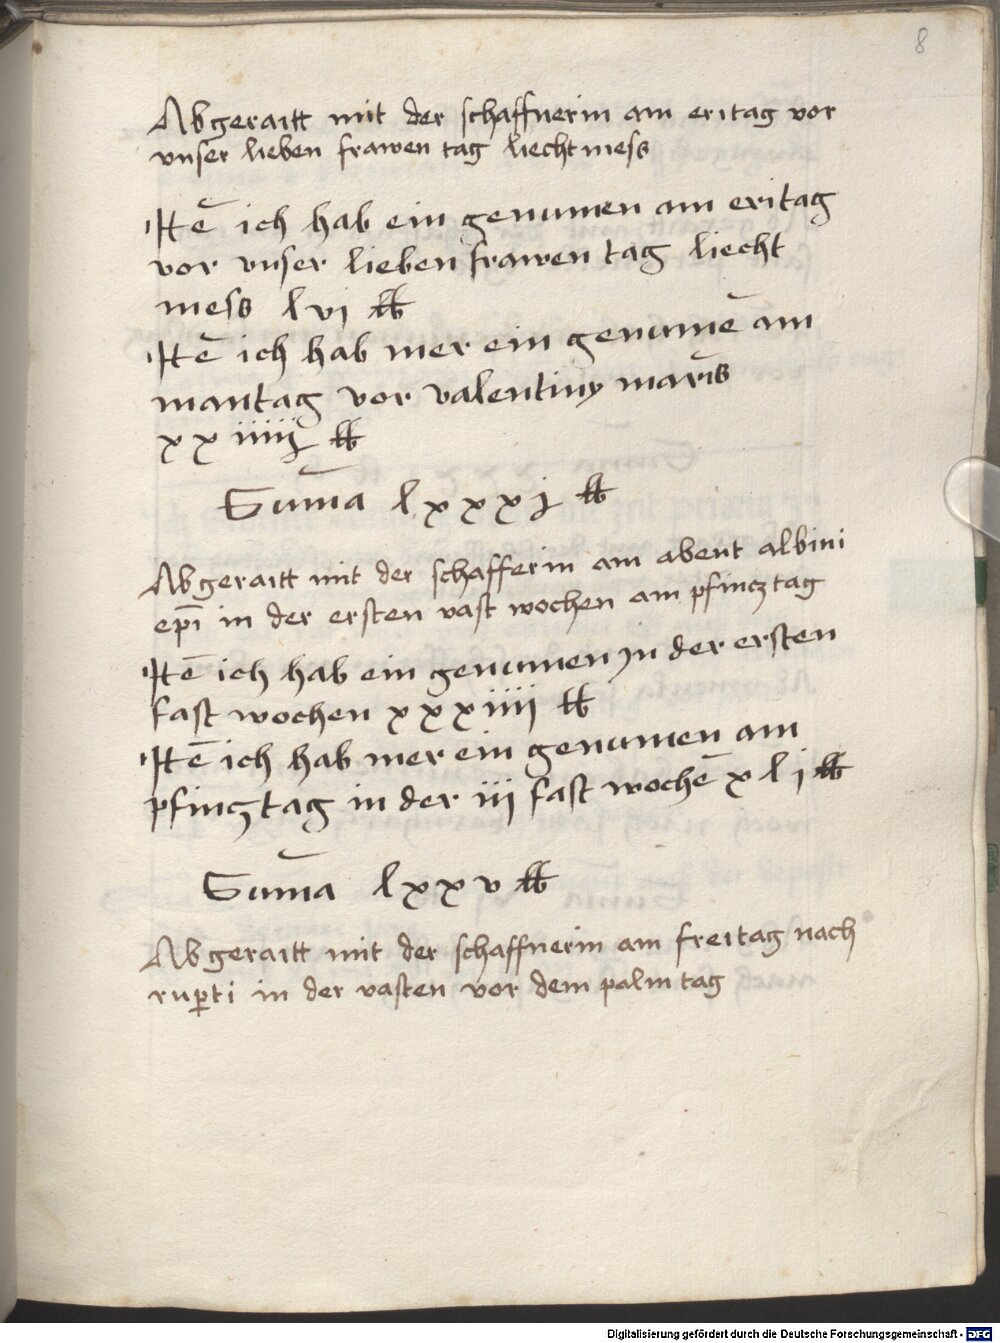 8
Abgeraitt mit der schaffnerin am eritag vor
vnser lieben frawen tag liechtmess
Itē ich hab ein genumen am eritag
vor vnser lieben frawen tag liecht
mess lvi ℔
Itē ich hab mer ein genumē am
mantag vor valentiny mar̄is
xxiiiij ℔
Sum̄a lxxxj ℔
Abgeraitt mit der schafferin am abent albini
ep̄i in der ersten vast wochen am pfincztag
Itē ich hab ein genumen jn der ersten
fast wochen xxxiiii ℔
Itē ich hab mer ein genumen am
pfincztag in der iij fast wochē xli ℔
Sum̄a lxxv ℔
Abgeraitt mit der schaffnerin am freitag nach
ruꝑti in der vasten vor dem palmtag
Digitalisierung gefördert durch die Deutsche Forschungsgemeinschaft - DFG